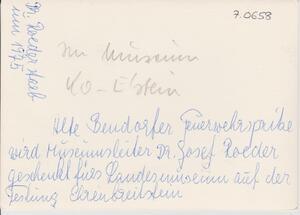 7.0658
Dr. Roeder starb
um 1975
Im Museum
Ko-E'stein
Alte Bendorfer Feuerwehrspritze
wird Museumsleiter Dr. Josef Roeder
geschenkt fürs Landesmuseum auf der
Festung Ehrenbreitstein